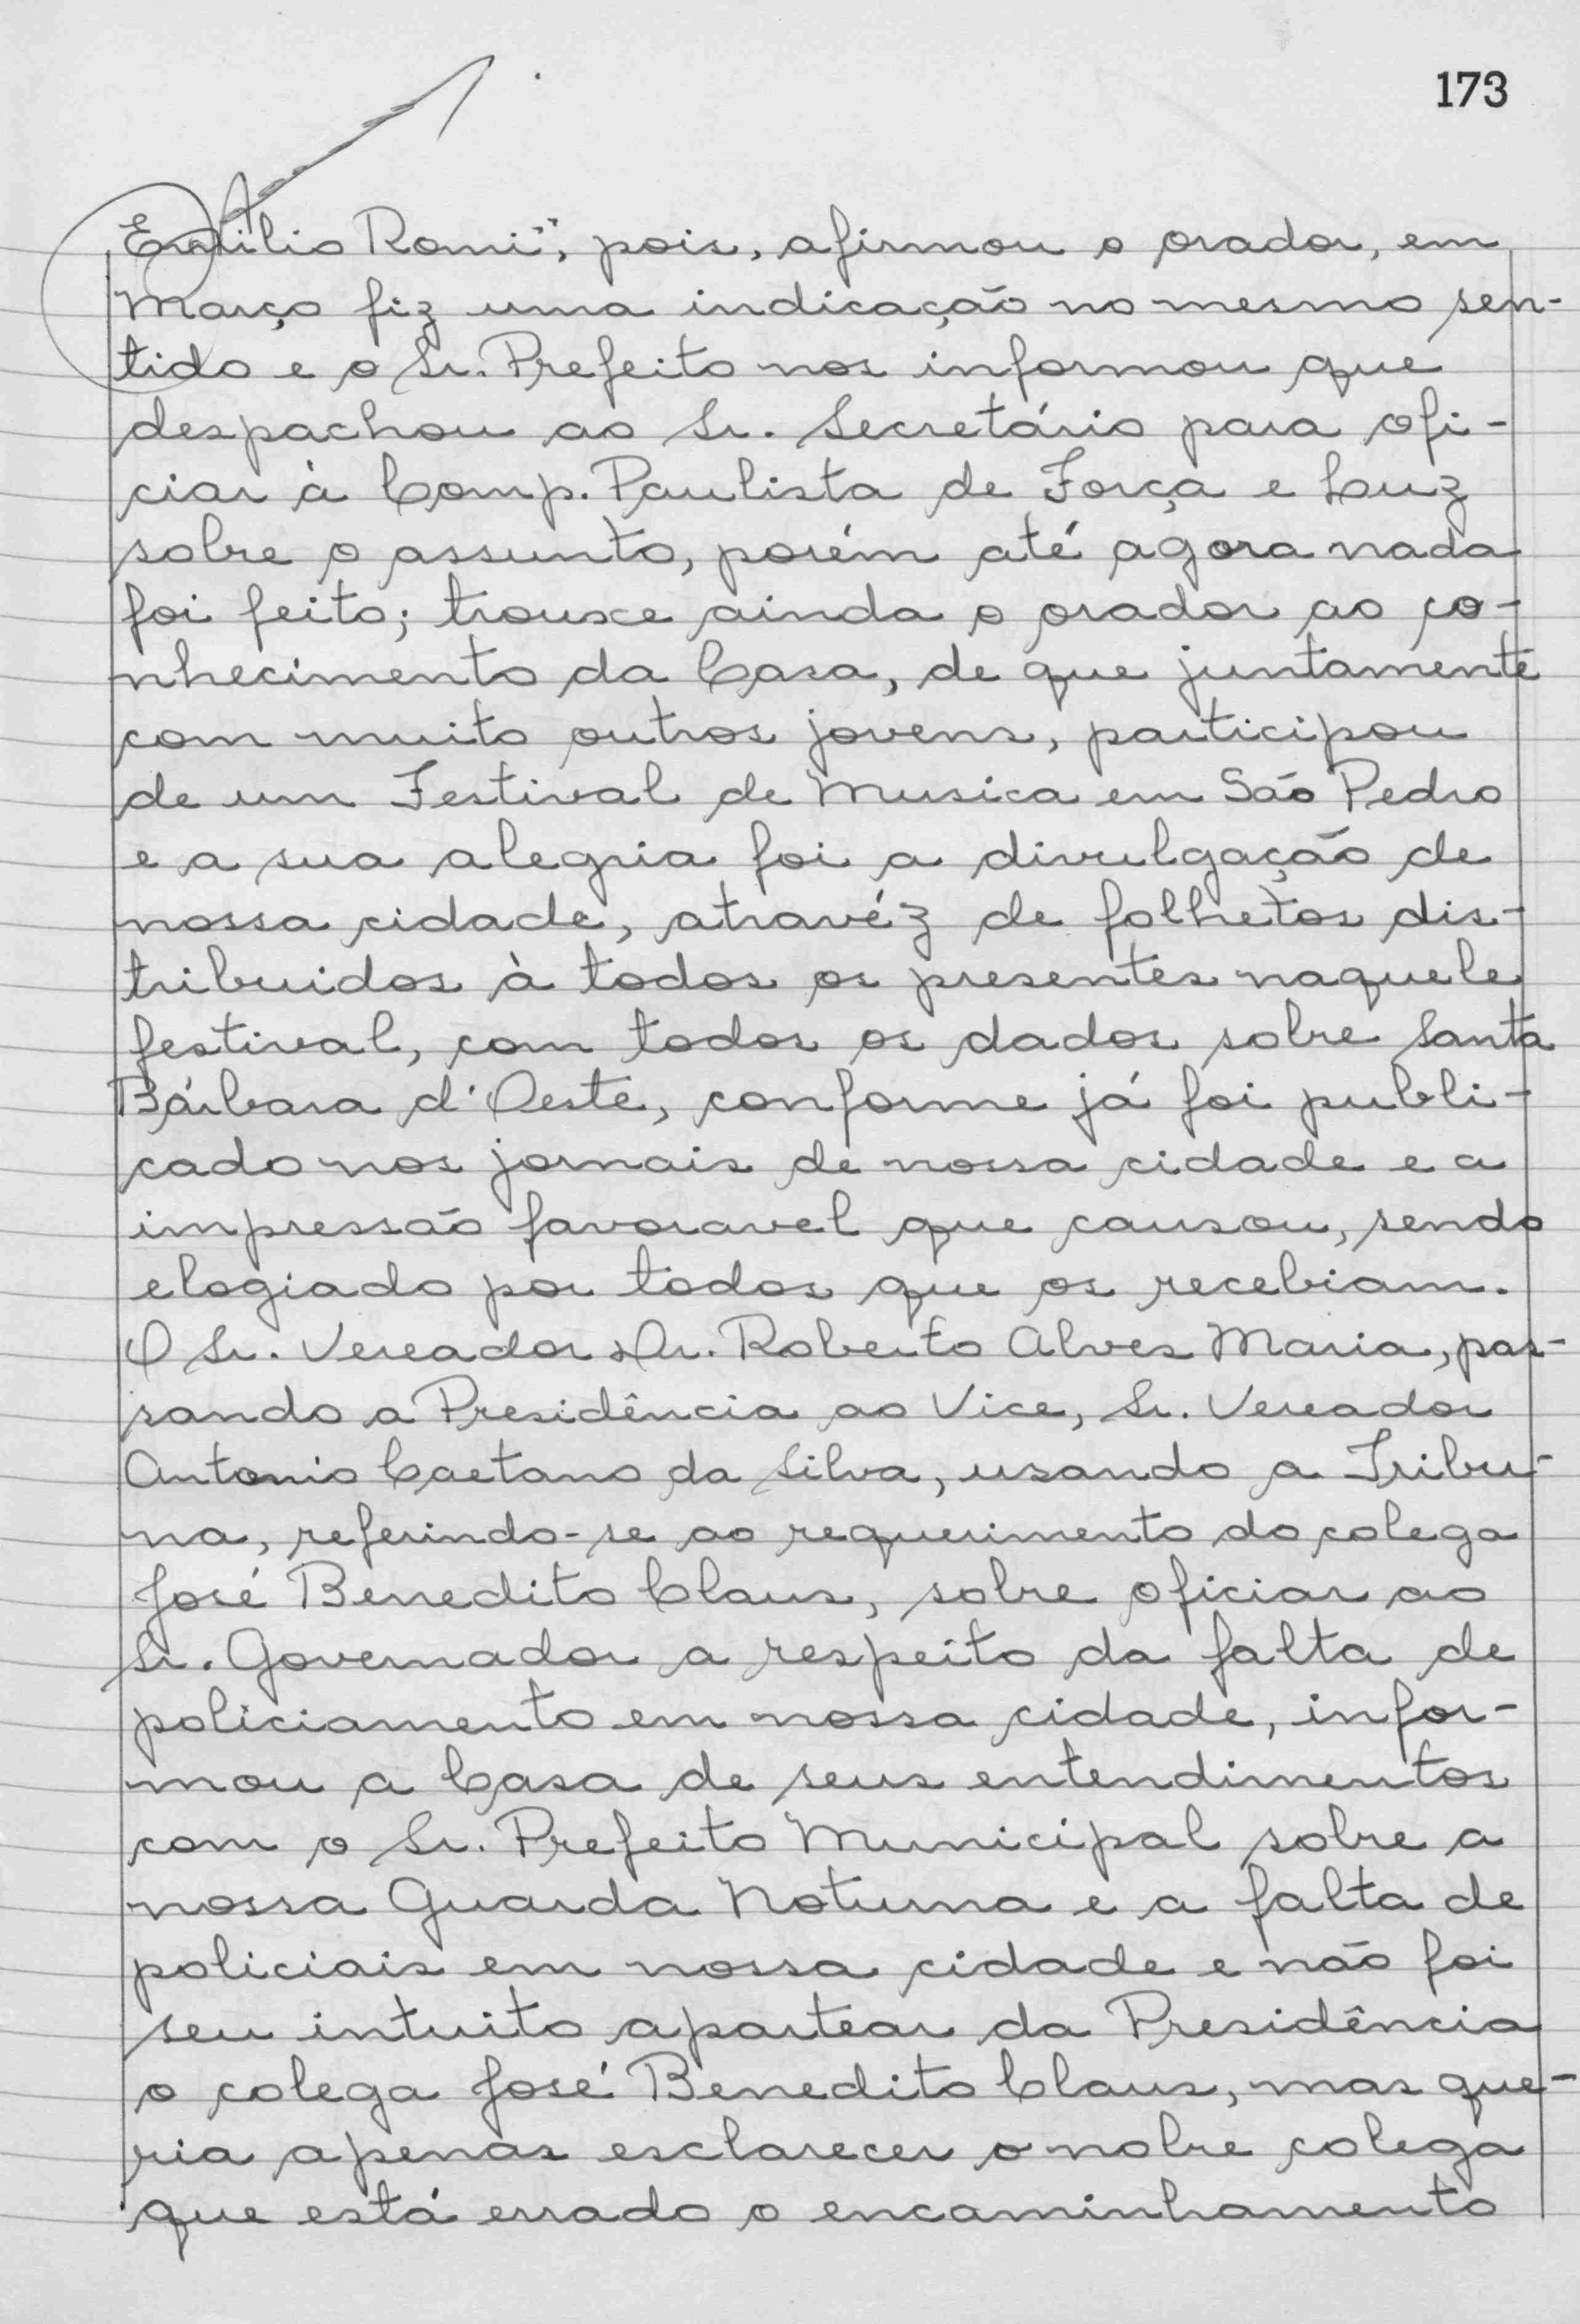 173
Emílio Romi", pois, afirmou o orador, em
Março fiz uma indicação no mesmo sen-
tido e o Sr. Prefeito nos informou que
despachou ao Sr. Secretário para ofi-
ciar à Comp. Paulista de Força e Luz
sobre o assunto, porém até agora nada
foi feito; trouxe ainda o orador ao co-
nhecimento da Casa, de que juntamente
com muito outros jovens, participou
de um Festival de Musica em São Pedro
e a sua alegria foi a divulgação de
nossa cidade, atravéz de folhetos dis-
tribuidos à todos os presentes naquele
festival, com todos os dados sobre Santa
Bárbara d'Oeste, conforme já foi publi-
cado nos jornais de nossa cidade e a
impressão favoravel que causou, sendo
elogiado por todos que os recebiam.
O Sr. Vereador Dr. Roberto Alves Maria, pas-
sando a Presidência ao Vice, Sr. Vereador
Antonio Caetano da Silva, usando a Tribu-
na, referindo-se ao requerimento do colega
José Benedito Claus, sobre oficiar ao
Sr. Governador a respeito da falta de
policiamento em nossa cidade, infor-
mou a Casa de seus entendimentos
com o Sr. Prefeito Municipal sobre a
nossa Guarda Noturna e a falta de
policiais em nossa cidade e não foi
seu intuito apartear da Presidência
o colega José Benedito Claus, mas que-
ria apenas esclarecer o nobre colega
que está errado o encaminhamento